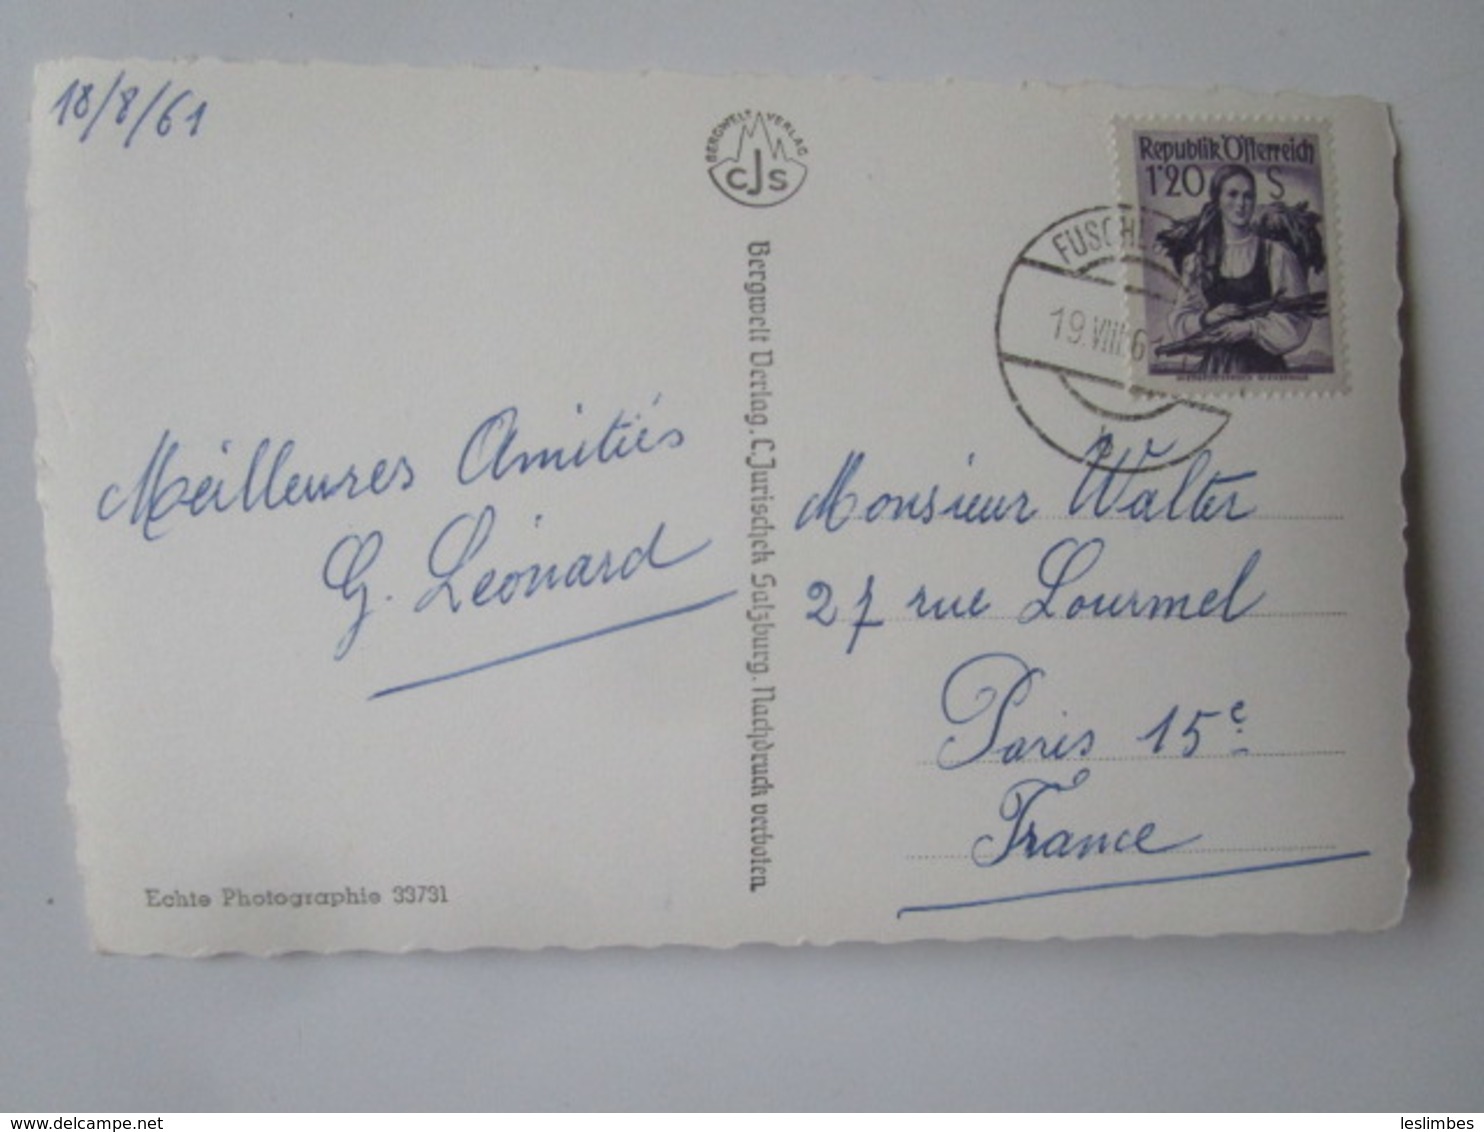 18/8/61
BERGWELT VERLAG
CJS
Republik Österreich
1'20 S
FUSCHL
19.VIII.61
Bergwelt Verlag, C. Jurischek Salzburg. Nachdruck verboten.
Meilleures Amitiés
G. Léonard
Monsieur Walter
27 rue Lourmel
Paris 15e
France
Echte Photographie 33731
delcampe.net
leslimbes